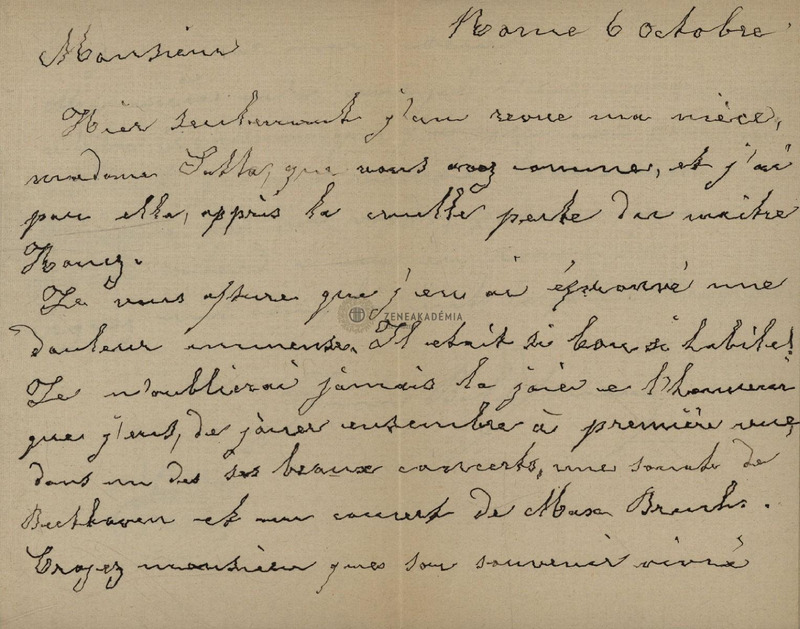 Rome 6 Octobre
Monsieur
Hier seulement j'ai revue ma nièce,
madame que vous avez connue, et j'ai
par ella, appris la cruelle perte du maître
ZENEAKADÉMIA
Je vous assure que j'en ai éprouvé une
douleur immense. Il etait si bon si habile!
Je n'oublierai jamais la joie e l'honneur
que j'eus, de jouer ensembre à première vue,
dans un des ses beaux concerts, une sonate de
Beethoven et un concert de Max Bruch.
Croyez monsieur que son souvenir vivrà